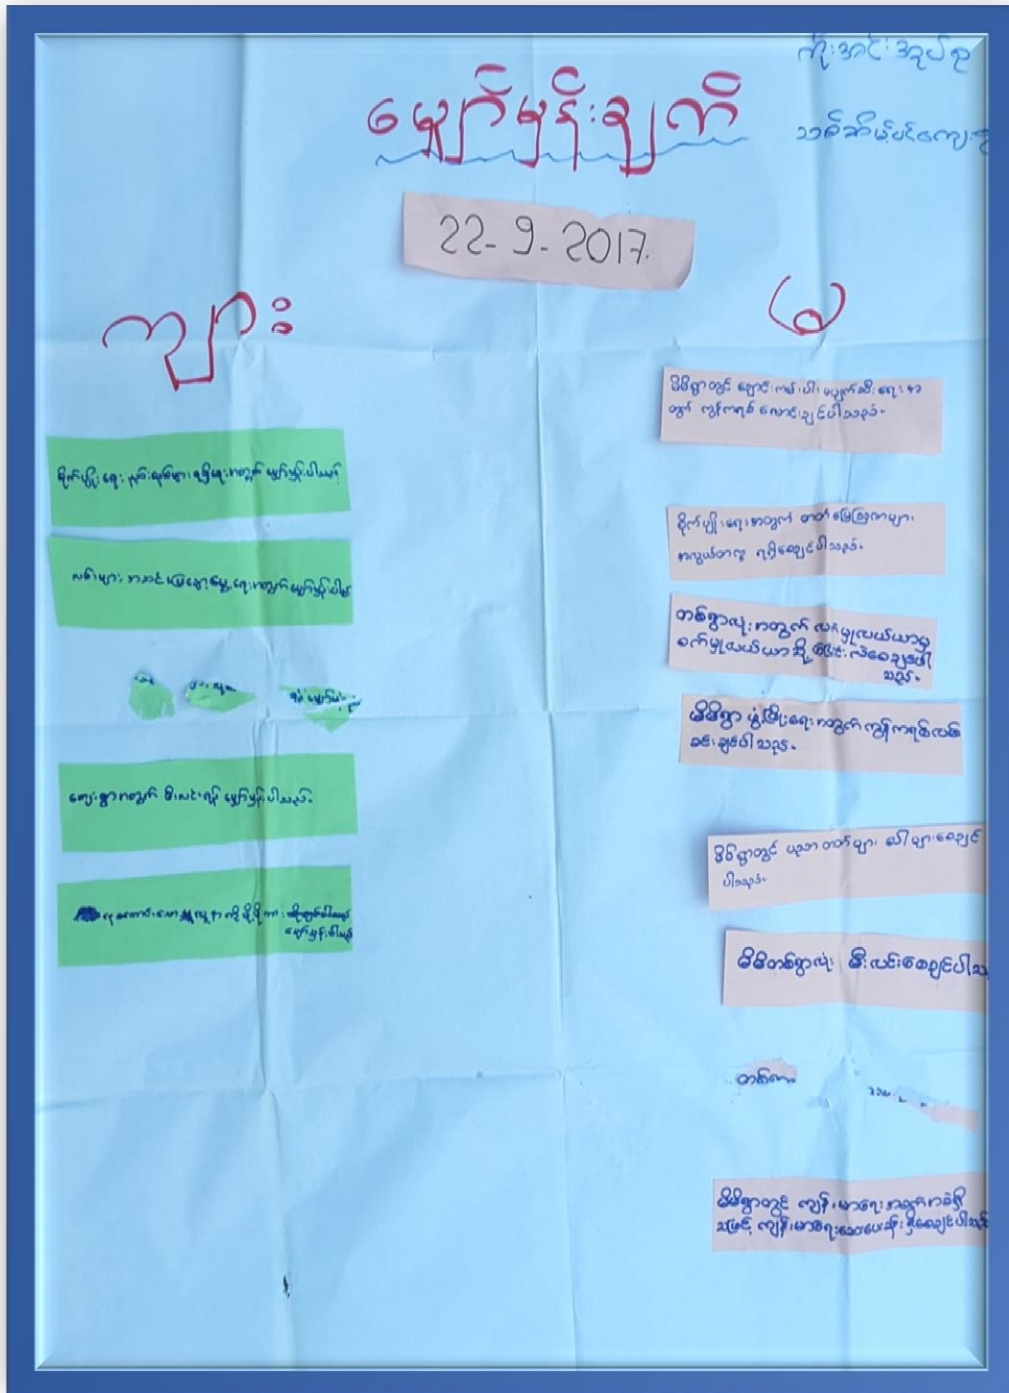 ကိုးအင်းအုပ်စု
သစ်ဆိမ့်ပင်ကျေး
မျှော်မှန်းချက်
22-9-2017.
ကျား
မ
စိုက်ပျိုးရေးနည်းစနစ်များ ရရှိရေးအတွက် မျှော်မှန်းပါသည်
လမ်းများ အဆင်ပြေချောမွေ့ရေးအတွက် မျှော်မှန်းပါ
ကျေးရွာအတွက် မီးလင်းရန် မျှော်မှန်းပါသည်။
မျှော်မှန်းပါသည်
မိမိရွာတွင် ချောင်းကမ်းပါး မပျက်ဆီးရေးအ
တွက် ကွန်ကရစ် လောင်းချင်ပါသည်။
စိုက်ပျိုးရေးအတွက် ဓာတ်မြေဩဇာများ
အလွယ်တကူ ရရှိစေချင်ပါသည်။
တစ်ရွာလုံးအတွက် လက်မှုလယ်ယာမှ
စက်မှုလယ်ယာသို့ ပြောင်းလဲစေချင်ပါ
သည်။
မိမိရွာ ဖွံ့ဖြိုးရေးအတွက် ကွန်ကရစ်လမ်း
ခင်းချင်ပါသည်။
မိမိရွာတွင် ပညာတတ်များ ပေါများစေချင်
ပါသည်။
မိမိတစ်ရွာလုံး မီးလင်းစေချင်ပါသ
မိမိရွာတွင် ကျန်းမာရေး အခက်အခဲရှိ
သဖြင့် ကျန်းမာရေးဆေးပေးခန်း ရှိစေချင်ပါသည်